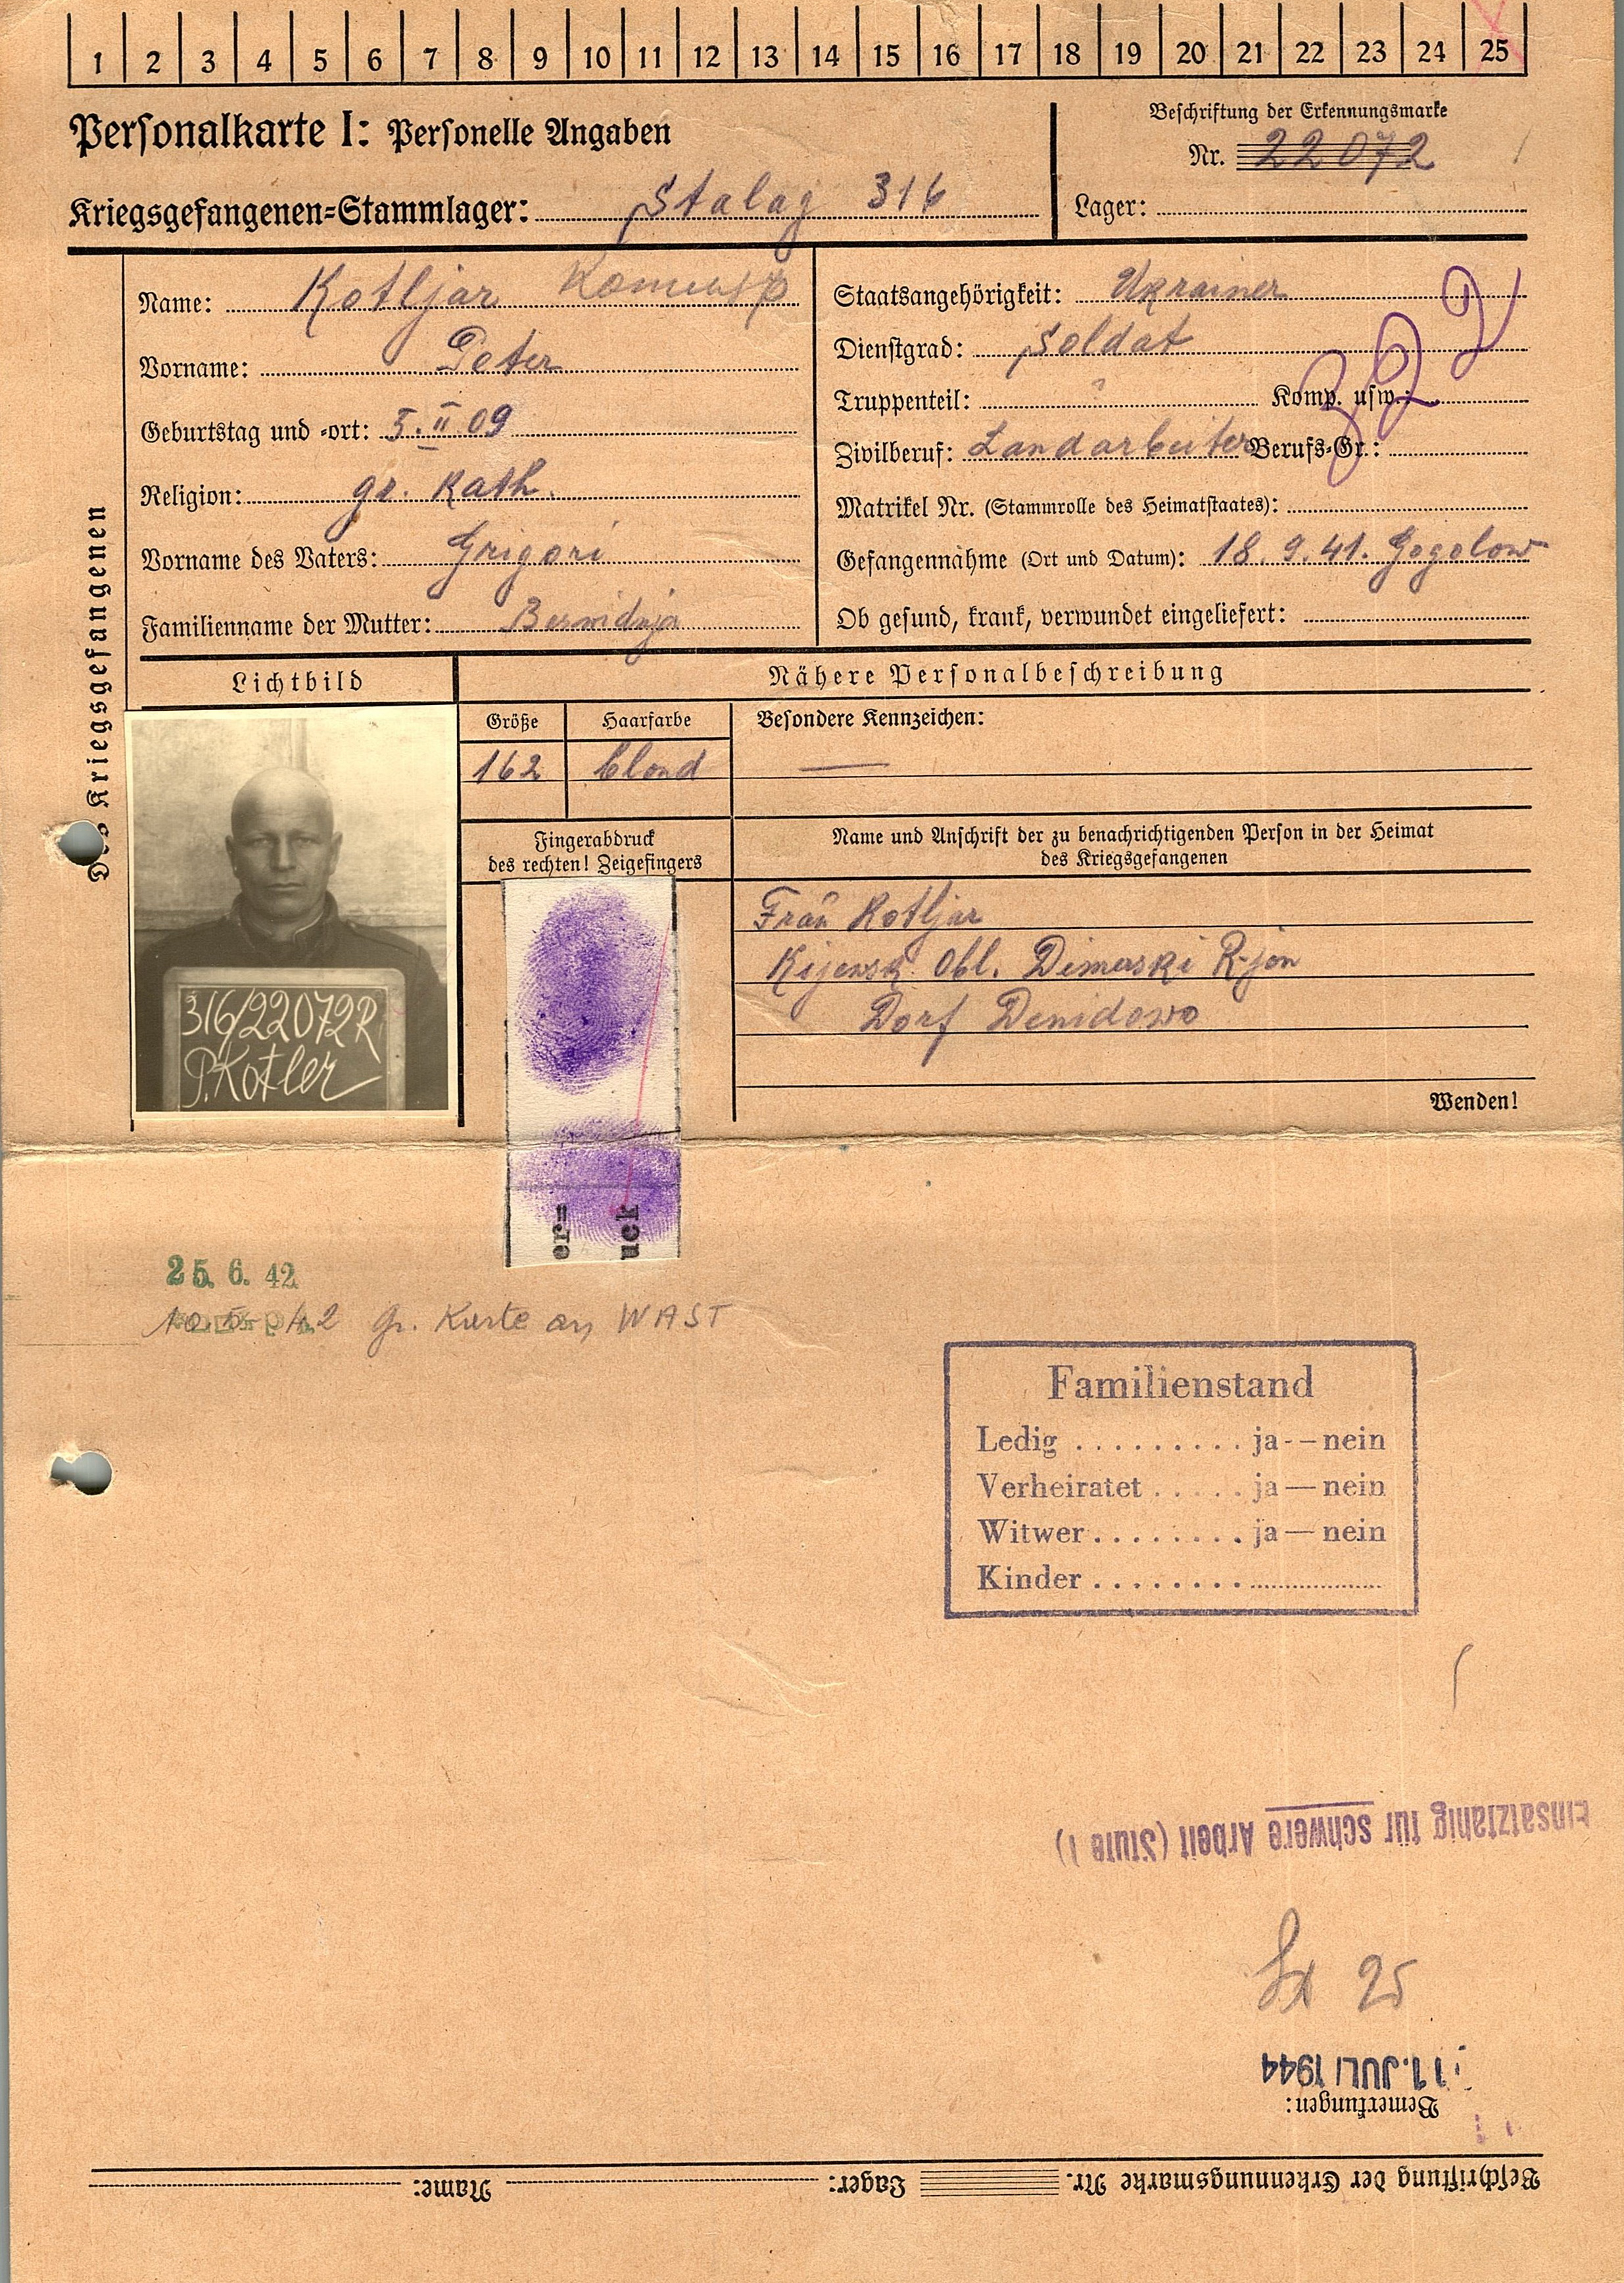 1 2 3 4 5 6 7 8 9 10 11 12 13 14 15 16 17 18 19 20 21 22 23 24 25
Personalkarte I: Personelle Angaben
Beschriftung der Erkennungsmarke
Nr. 22072
Kriegsgefangenen-Stammlager: Stalag 316
Lager:
Des Kriegsgefangenen
Name: Kotljar
Vorname: Peter
Geburtstag und -ort: 5.II 09
Religion: gr. Kath.
Vorname des Vaters: Grigori
Familienname der Mutter:
Staatsangehörigkeit: Ukrainer
Dienstgrad: Soldat
Truppenteil: Komp. usw.:
Zivilberuf: Landarbeiter Berufs-Gr.:
Matrikel Nr. (Stammrolle des Heimatstaates):
Gefangennahme (Ort und Datum): 18.9.41. Gogolow
Ob gesund, krank, verwundet eingeliefert:
Lichtbild
Nähere Personalbeschreibung
Größe
Haarfarbe
Besondere Kennzeichen:
162
blond
—
316/22072R
P.Kotler
Fingerabdruck
des rechten! Zeigefingers
er=
uck
Name und Anschrift der zu benachrichtigenden Person in der Heimat
des Kriegsgefangenen
Frau Kotljar
Kijewsk. Obl. Dimerski R-jon
Dorf Demidowo
Wenden!
25. 6. 42
10.5.42 gr. Karte an WAST
Familienstand
Ledig ......... ja--nein
Verheiratet ..... ja—nein
Witwer ........ ja—nein
Kinder ........
Einsatzfähig für schwere Arbeit (Stufe 1)
25
11. JULI 1944
Bemerkungen:
Beschriftung der Erkennungsmarke Nr. Lager: Name: